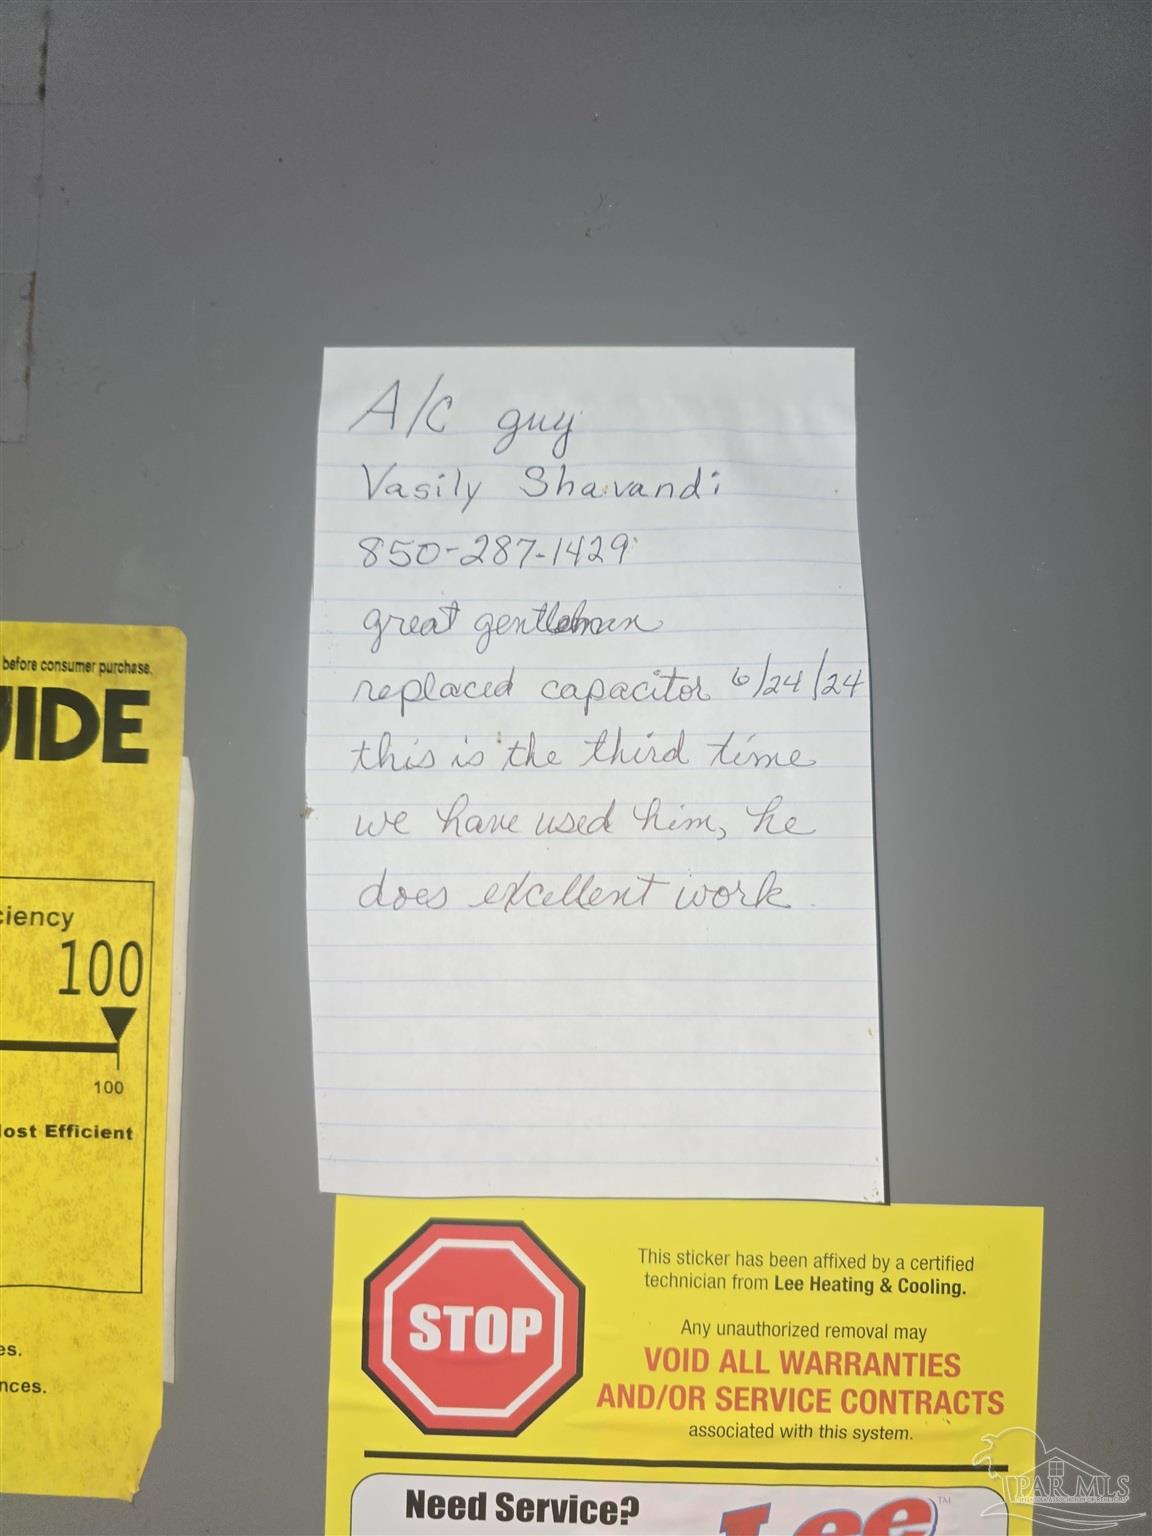 A/C guy
Vasily Shavandi
850-287-1429
great gentleman
replaced capacitor 6/24/24
this is the third time
we have used him, he
does excellent work.
before consumer purchase.
UIDE
ciency
100
100
Most Efficient
es.
nces.
STOP
This sticker has been affixed by a certified
technician from Lee Heating & Cooling.
Any unauthorized removal may
VOID ALL WARRANTIES
AND/OR SERVICE CONTRACTS
associated with this system.
Need Service?
Lee™
PAR MLS